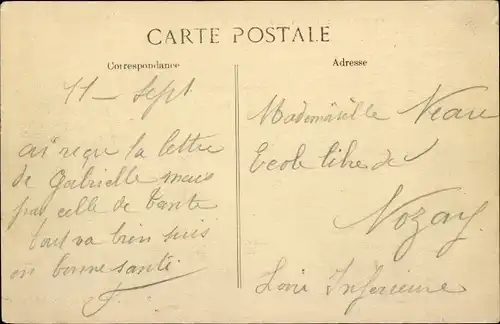 CARTE POSTALE
Correspondance
Adresse
11 - Sept
ai reçu la lettre
de Gabrielle mais
pas celle de tante
tout va bien suis
en bonne santé
Mademoiselle
Ecole libre de
Nozay
Loire Inférieure